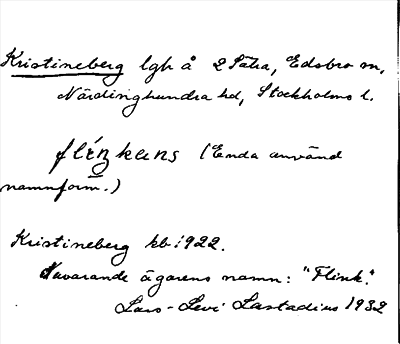 Kristineberg lgh å 2 Sätra, Edsbro sn,
Närdinghundra hd, Stockholms l.
flińkens (Enda använd
namnform.)
Kristineberg kb 1922.
Nuvarande ägarens namn: "Flink".
Lars-Levi Læstadius 1932